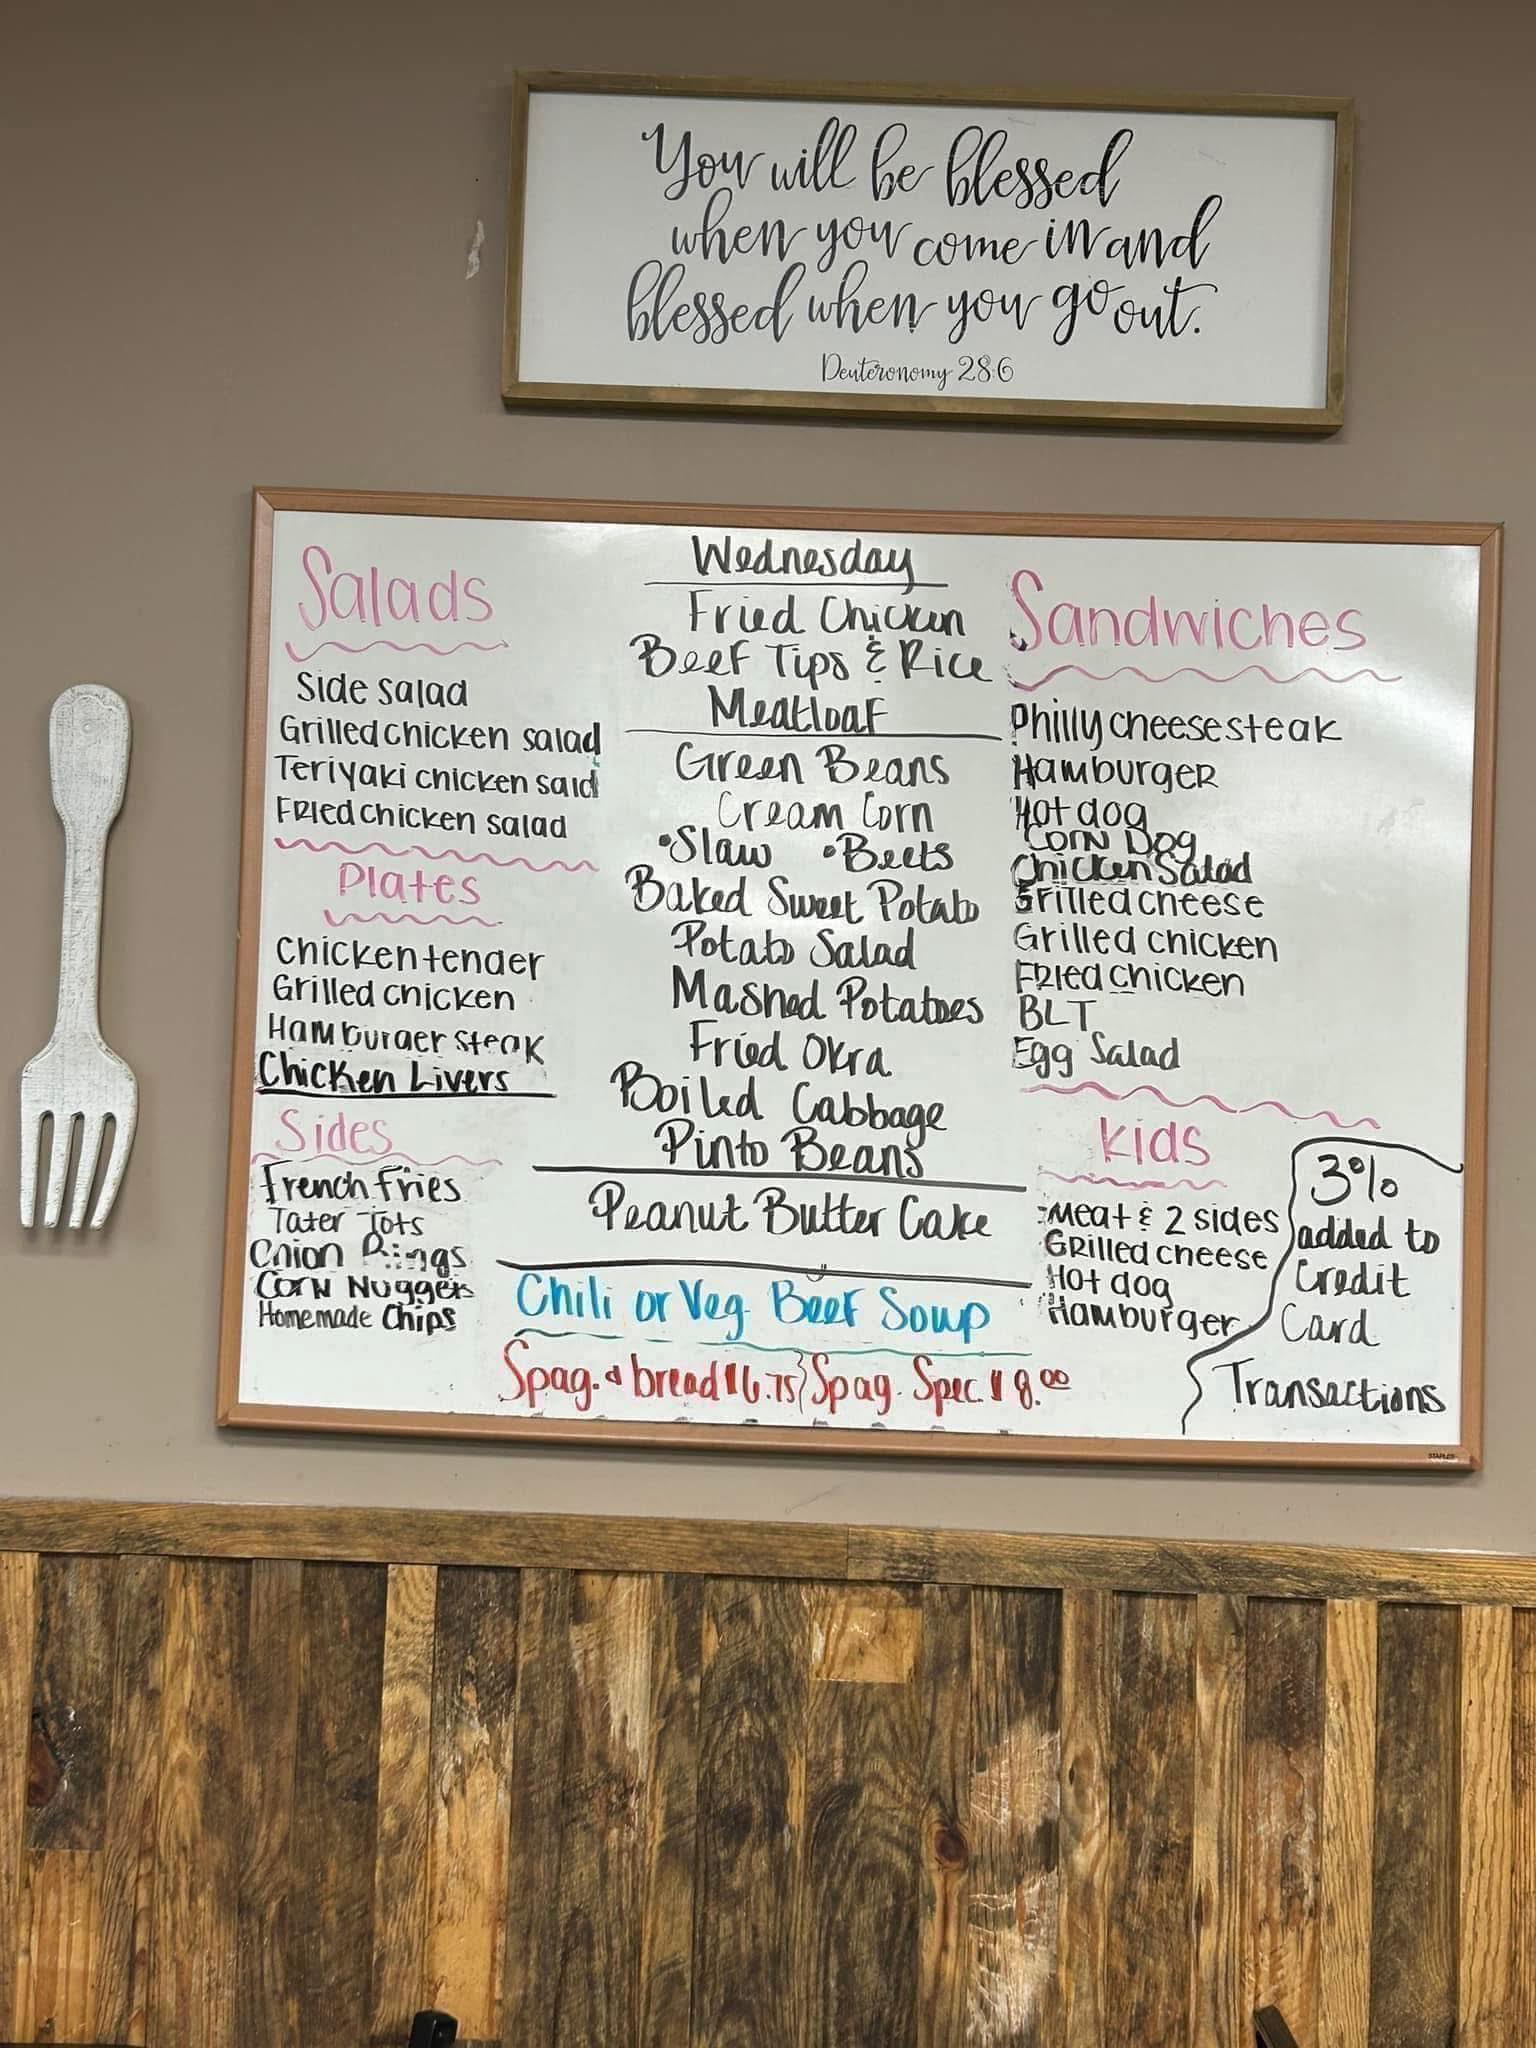 You will be blessed
when you come in and
blessed when you go out.
Deuteronomy 28:6
Salads
Side salad
Grilled chicken salad
Teriyaki chicken sald
Fried chicken salad
Plates
Chicken tender
Grilled chicken
Hamburger steak
Chicken Livers
Sides
French Fries
Tater Tots
Onion Rings
Corn Nuggets
Homemade Chips
Wednesday
Fried Chicken
Beef Tips & Rice
Meatloaf
Green Beans
Cream Corn
•Slaw •Beets
Baked Sweet Potato
Potato Salad
Mashed Potatoes
Fried Okra
Boiled Cabbage
Pinto Beans
Peanut Butter Cake
Chili or Veg Beef Soup
Spag. & bread $6.75 Spag. Spec. $8.00
Sandwiches
Philly cheesesteak
Hamburger
Hot dog
Corn Dog
Chicken Salad
Grilled cheese
Grilled chicken
Fried chicken
BLT
Egg Salad
kids
Meat & 2 sides
Grilled cheese
Hot dog
Hamburger
3%
added to
Credit
Card
Transactions
STAPLES